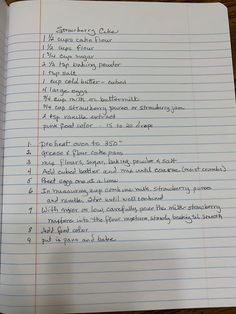 Strawberry Cake
1 1/2 cups cake flour
1 1/2 cups flour
1 3/4 cup sugar
2 1/2 tsp baking powder
1 tsp salt
1 cup cold butter - cubed
4 large eggs
3/4 cup milk or buttermilk
3/4 cup strawberry puree or strawberry jam
2 tsp vanilla extract
pink food color - 15 to 20 drops
1. Preheat oven to 350°
2 Grease & flour cake pans
3 mix flours, sugar, baking powder & salt
4 Add cubed butter and mix until coarse (moist crumbs)
5 Beat eggs one at a time
6 In measuring cup combine milk, strawberry puree
and vanilla. Stir until well combined
7 With mixer on low, carefully pour the milk-strawberry
mixture into the flour mixture, slowly beating til smooth
8 Add food color
9 put in pans and bake